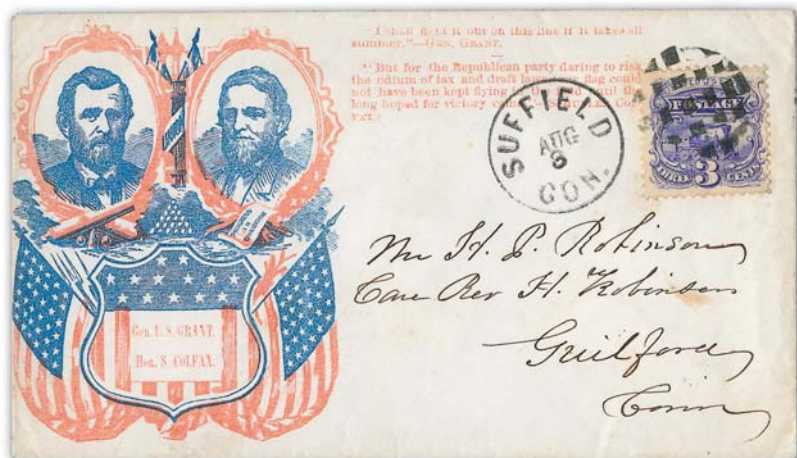 "I shall fight it out on this line if it takes all
summer."—GEN. GRANT.
"But for the Republican party daring to risk
the odium of tax and draft laws our flag could
not have been kept flying in the field until the
long hoped for victory came."—SCHUYLER COL-
FAX.
SUFFIELD
AUG
8
CON.
POSTAGE
THREE 3 CENTS
Mr H. P. Robinson
Care Rev H. Robinson
Guilford
Conn
Gen. U. S. GRANT.
Hon. S. COLFAX.